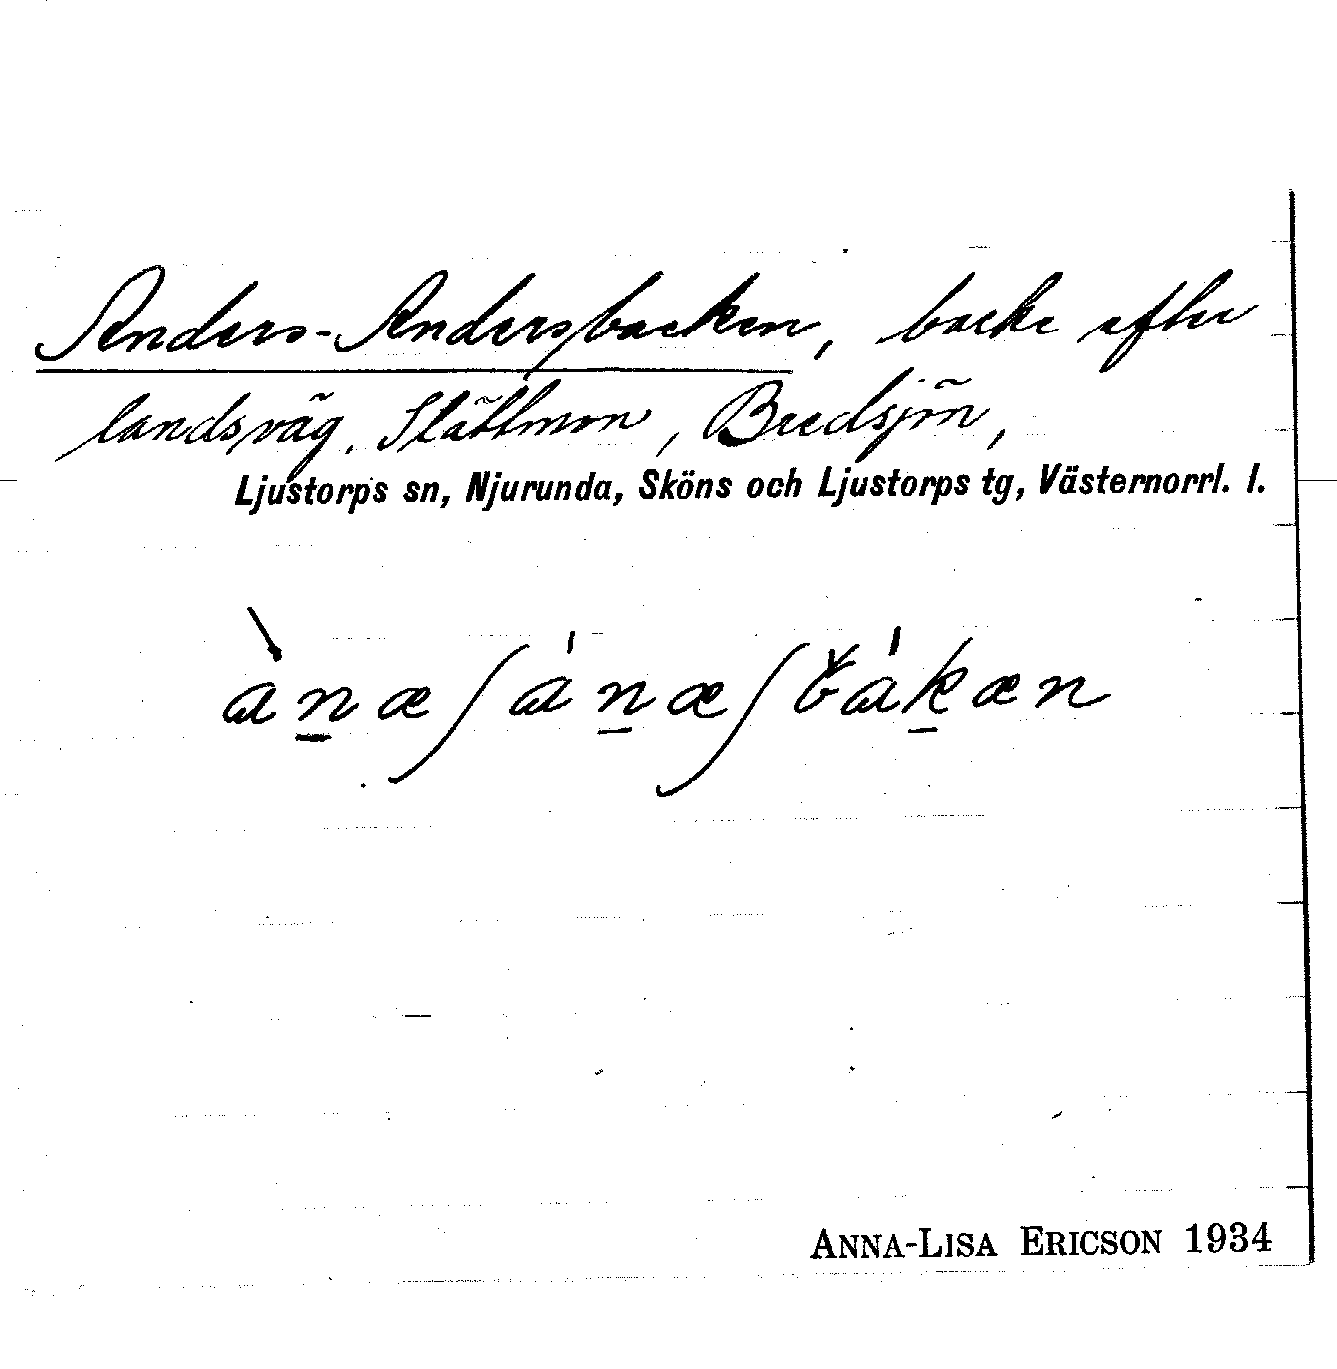 Anders-Andersbacken, backe efter
landsväg, Slättmon, Bredsjön,
Ljustorps sn, Njurunda, Sköns och Ljustorps tg, Västernorrl. l.
ANNA-LISA ERICSON 1934